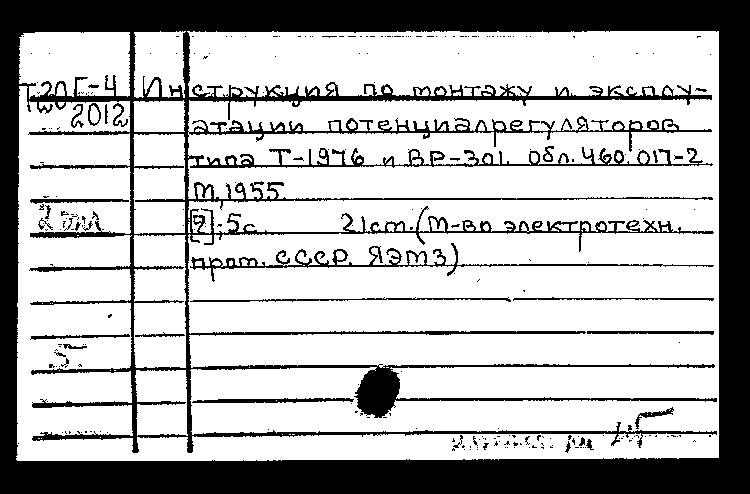 Г-4 Инструкция по монтажу и эксплу-
2012 атации потенциалрегуляторов
типа Т-1976 и ВР-301. Обл. 460.017-2
М, 1955.
2 экз [7]; 5с 21 cm. (М-во электротехн.
пром. СССР. ЯЭМЗ)
5.